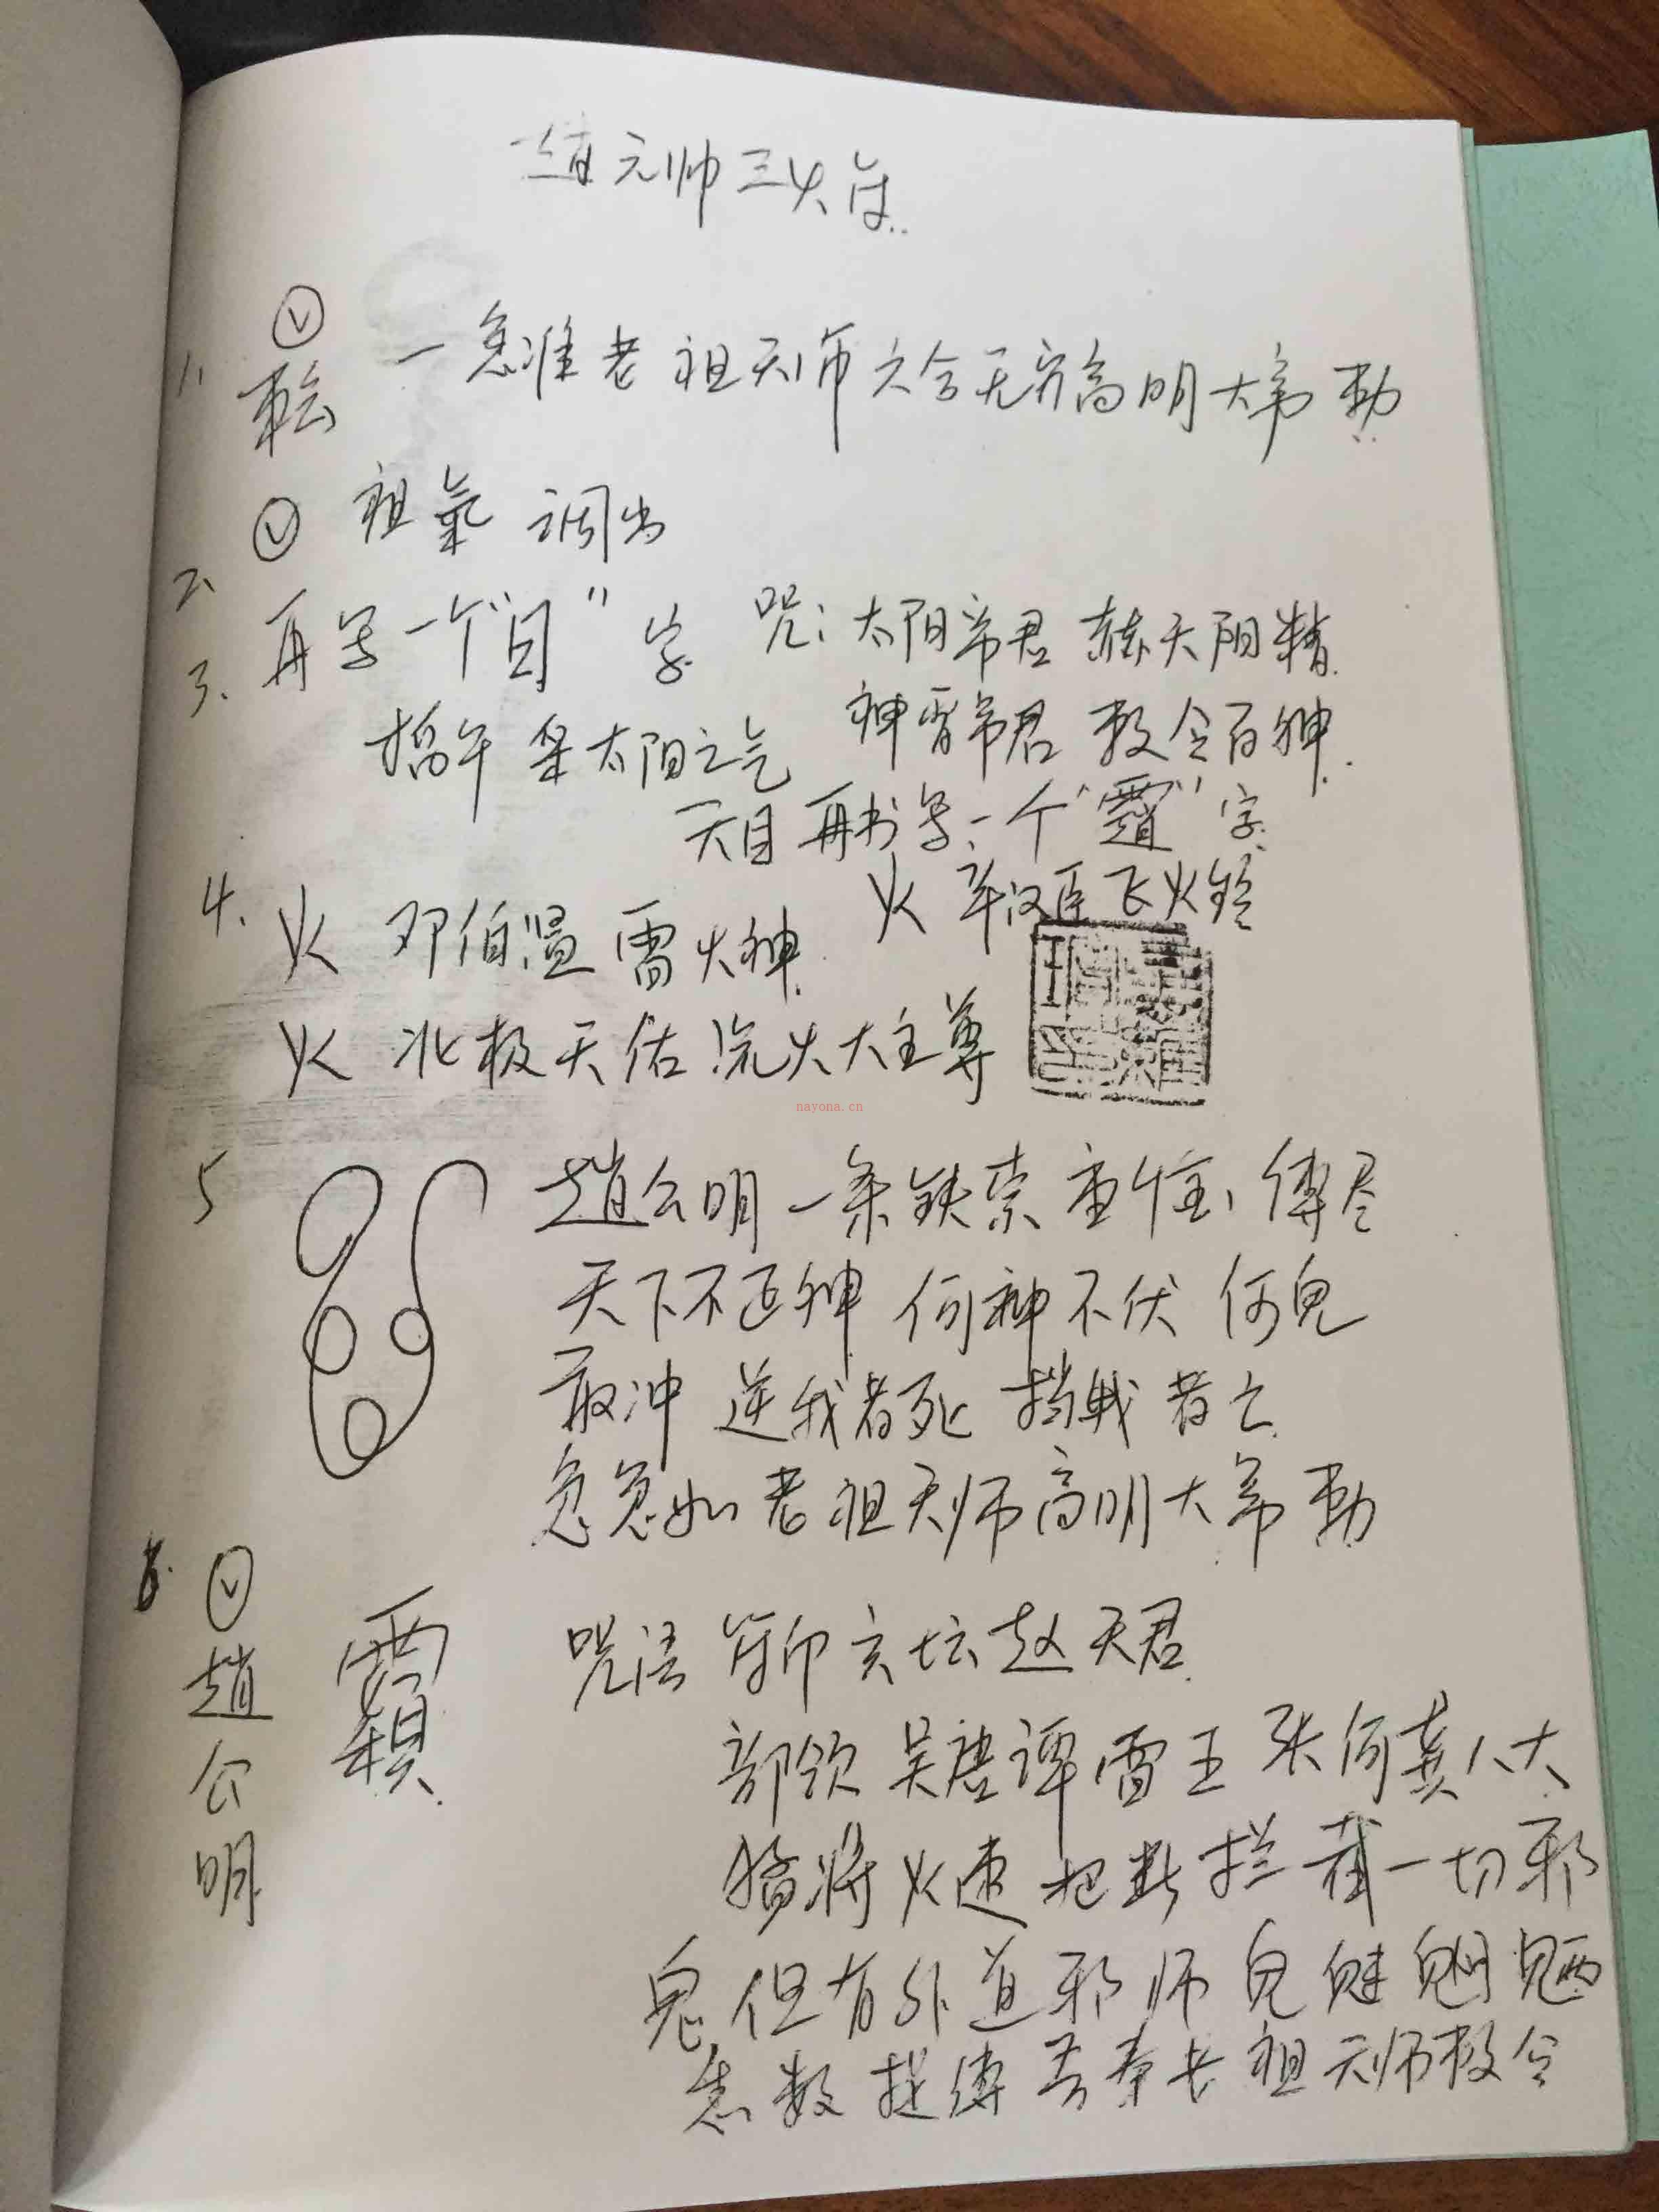 趙元帅三火符
1. 一急准老祖天师六合无穷高明大帝勅
2、祖氣 调出
3、再写一个"目"字 咒：太阳帝君 赫天阳精
掐午 采太阳之气 神霄帝君 敕令百神
天目 再书写一个"霻"字
火 辛汉臣飞火铃
4. 火 邓伯温雷火神
火 北极天佑 火大主尊
nayona.cn
5 趙公明一条铁索重 缚尽
天下不正神 何神不伏 何鬼
敢冲 逆我者死 挡我者亡
急急如老祖天师高明大帝勅
6. 趙公明 咒语 符印玄坛赵天君
部领 吴唐谭雷王 张何龚八大
猛将火速把断拦截一切邪
鬼但有外道邪师鬼 魍魉
悉数捉缚 奉老祖天师敕令